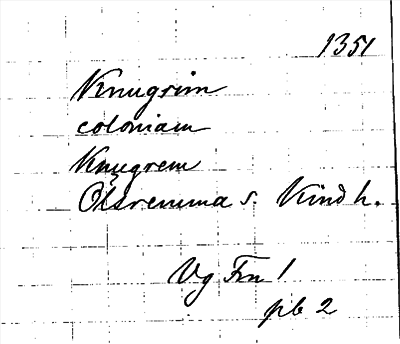 1351
Knugrim
coloniam
Knugrem
Otteremma s. Kind h.
Vg Frn 1
pb 2